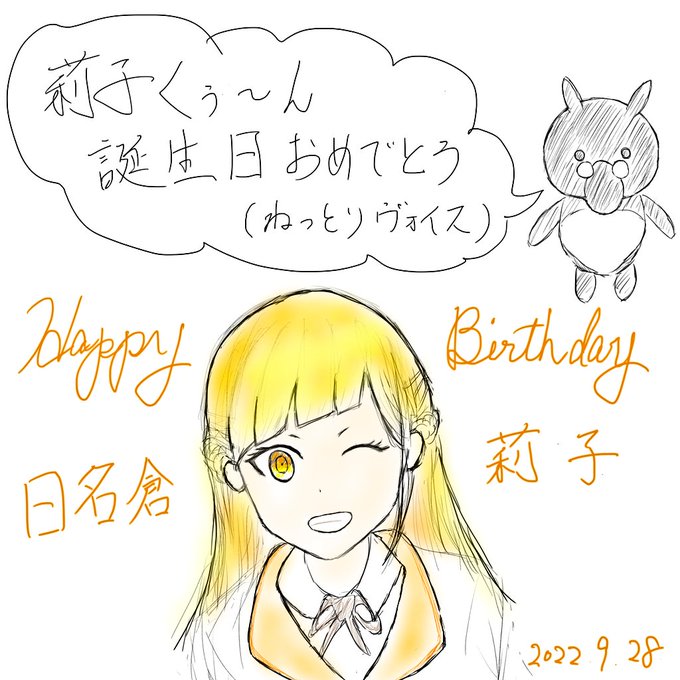 莉子くぅ～ん
誕生日おめでとう
(ねっとりヴォイス)
Happy Birthday
日名倉 莉子
2022.9.28